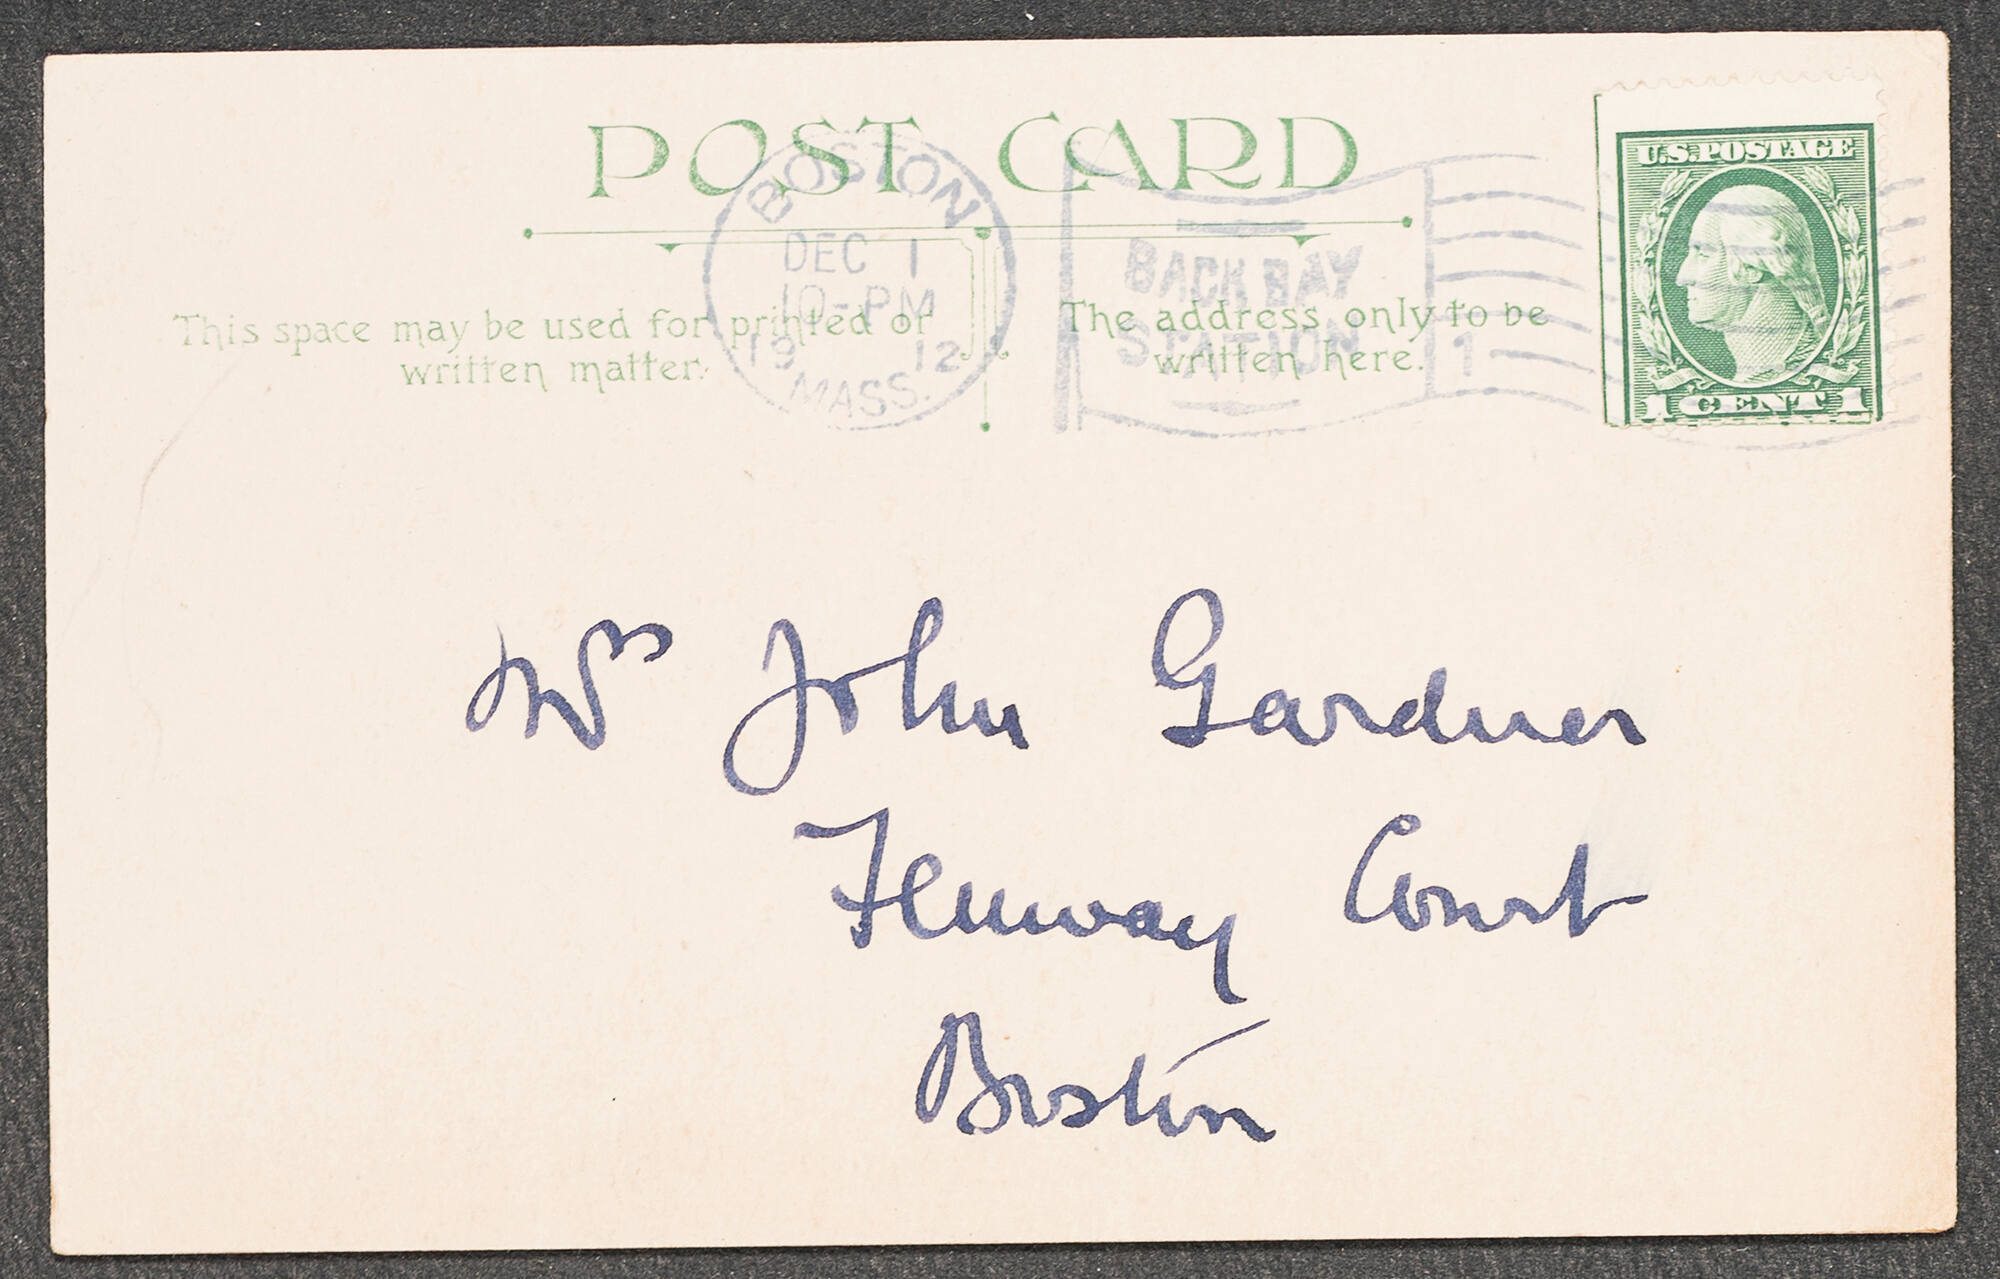 POST CARD
U.S. POSTAGE
1 CENT 1
BOSTON
DEC 1
10-PM
1912
MASS.
BACK BAY
STATION
1
This space may be used for printed or
written matter.
The address only to be
written here.
Mrs John Gardner
Fenway Court
Boston